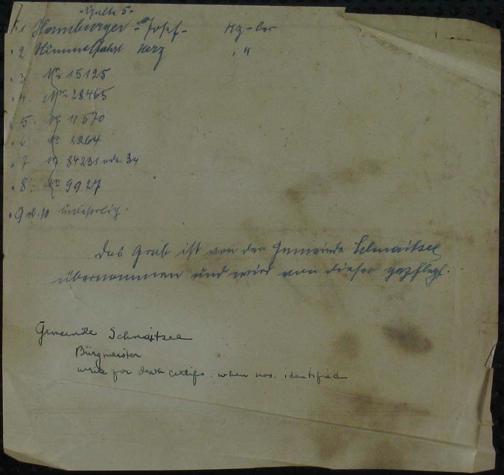 - Halte 5 -
1. Hamburger - Josef -
2 Himmelfahrt Herz "
3 No 15125
4 No 28465
5 No 11570
6 No 2264
7 No 84231 oder 34
8 No 9927
9 u. 10 unleserlich.
Das Grab ist von der Gemeinde Schnaitsee
übernommen und wird von dieser gepflegt.
Gemeinde Schnaitsee
Bürgmeister
write for death certifs. when nos. identified